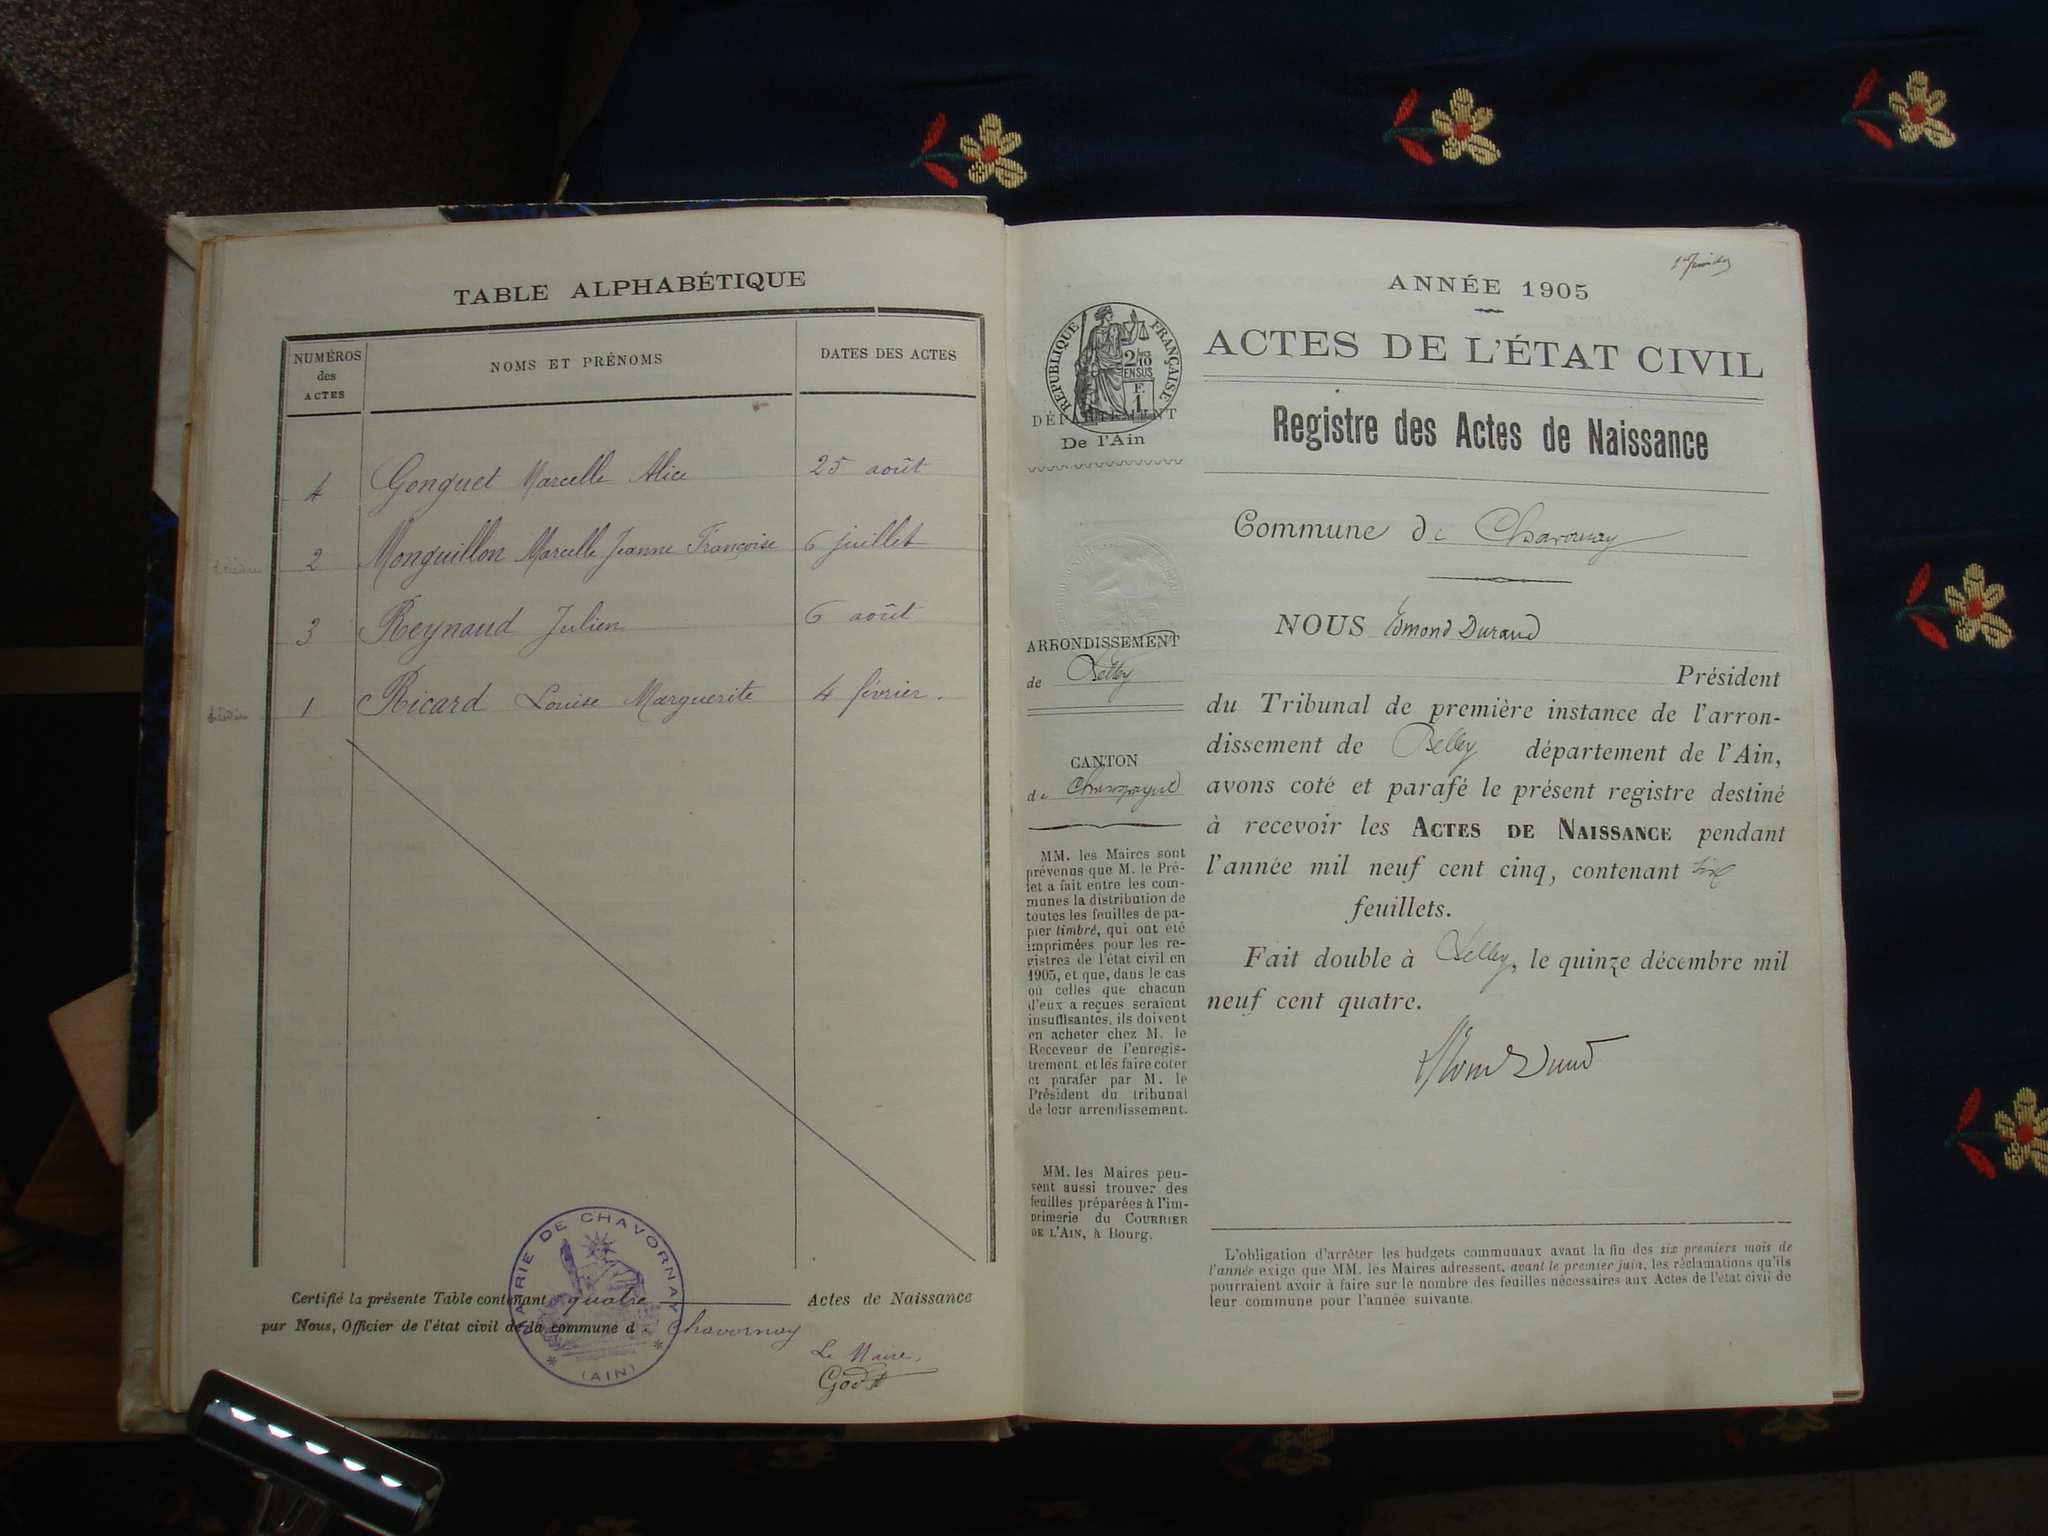 TABLE ALPHABÉTIQUE
NUMÉROS
des
ACTES
NOMS ET PRÉNOMS
DATES DES ACTES
4 Gonguet Marcelle Alice 25 août
2 Monguillon Marcelle Jeanne Françoise 6 juillet
3 Reynaud Julien 6 août
1 Ricard Louise Marguerite 4 février.
Certifié la présente Table contenant quatre Actes de Naissance
par Nous, Officier de l'état civil de la commune de Chavornay
Le Maire,
MAIRIE DE CHAVORNAY
(AIN)
ANNÉE 1905
ACTES DE L'ÉTAT CIVIL
Registre des Actes de Naissance
Commune de Chavornay
NOUS Edmond Durand
Président
du Tribunal de première instance de l'arron-
dissement de Belley département de l'Ain,
avons coté et parafé le présent registre destiné
à recevoir les ACTES DE NAISSANCE pendant
l'année mil neuf cent cinq, contenant six
feuillets.
Fait double à Belley, le quinze décembre mil
neuf cent quatre.
L'obligation d'arrêter les budgets communaux avant la fin des six premiers mois de
l'année exige que MM. les Maires adressent, avant le premier juin, les réclamations qu'ils
pourraient avoir à faire sur le nombre des feuilles nécessaires aux Actes de l'état civil de
leur commune pour l'année suivante.
RÉPUBLIQUE FRANÇAISE
2/10
EN SUS
F.
1
DÉPARTEMENT
De l'Ain
ARRONDISSEMENT
de Belley
CANTON
de Champagne
MM. les Maires sont
prévenus que M. le Pré-
fet a fait entre les com-
munes la distribution de
toutes les feuilles de pa-
pier timbré, qui ont été
imprimées pour les re-
gistres de l'état civil en
1905, et que, dans le cas
où celles que chacun
d'eux a reçues seraient
insuffisantes, ils doivent
en acheter chez M. le
Receveur de l'enregis-
trement, et les faire coter
et parafer par M. le
Président du tribunal
de leur arrendissement.
MM. les Maires peu-
vent aussi trouver des
feuilles préparées à l'im-
primerie du COURRIER
DE L'AIN, à Bourg.